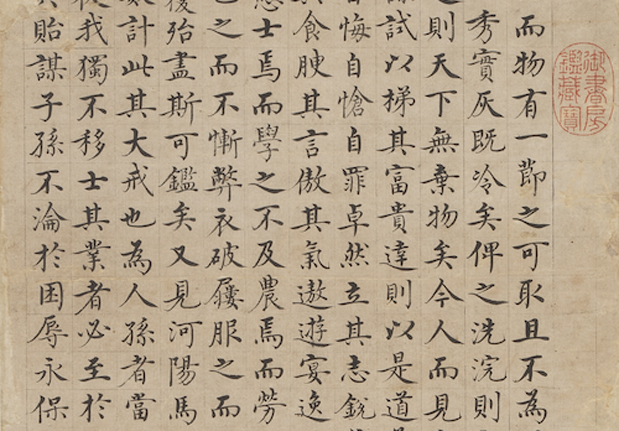 御書房鑑藏寶
而物有一節之可取且不為
秀實灰既冷矣俾之洗浣則
則天下無棄物矣今人而見
試以梯其富貴違則以是道
悔自愴自罪卓然立其志銳
食腴其言傲其氣遨遊宴逸
士焉而學之不及農焉而勞
之而不慚弊衣破屨服之而
殆盡斯可鑑矣又見河陽馬
計此其大戒也為人孫者當
我獨不移士其業者必至於
貽謀子孫不淪於困辱永保